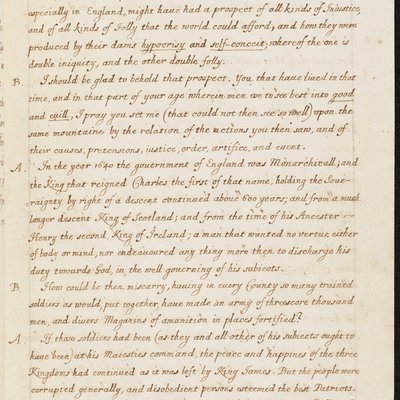 especially in England, might haue had a prospect of all kinds of Iniustice,
and of all kinds of Folly that the world could afford, and how they were
produced by their dams hypocrisy and self-conceit, whereof the one is
double iniquity, and the other double folly.
B. I should be glad to behold that prospect. You that haue liued in that
time, and in that part of your age wherein men use to see best into good
and euill, I pray you set me (that could not then see so well) upon the
same mountaine by the relation of the actions you then saw, and of
their causes, pretensions, iustice, order, artifice, and euent.
A. In the year 1640 the government of England was Monarchicall; and
the King that reigned Charles the first of that name, holding the Soue-
raignty by right of a descent continued aboue 600 years; and from a much
longer descent King of Scotland; and from the time of his Ancestor
Henry the second, King of Ireland; a man that wanted no vertue either
of body or mind, nor endeauoured any thing more then to discharge his
duty towards God, in the well governing of his subiects.
B. How could he then miscarry, hauing in euery County so many trained
soldiers as would, put together, haue made an army of threescore thousand
men, and diuers Magazins of amunition in places fortified?
A. If those soldiers had been (as they and all other of his subiects ought to
haue been) at his Maiesties command, the peace and happines of the three
Kingdoms had continued as it was left by King James. But the people were
corrupted generally, and disobedient persons esteemed the best Patriots.